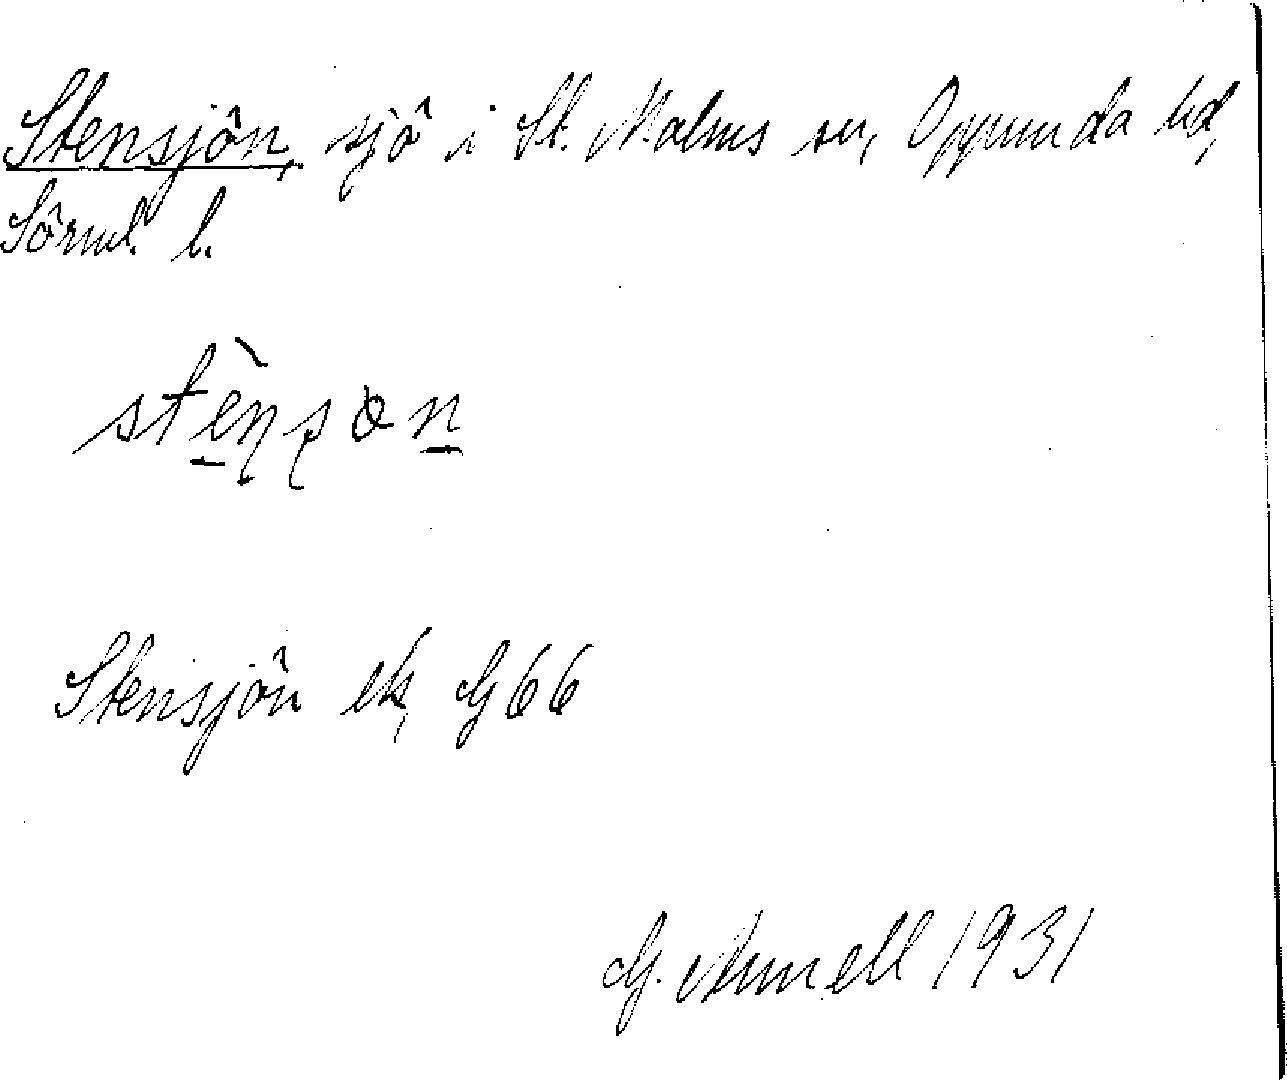 Stensjön, sjö i St. Malms sn, Oppunda hd,
Sörml. l.
stènson
Stensjön ek, G 66
G. Arnell 1931